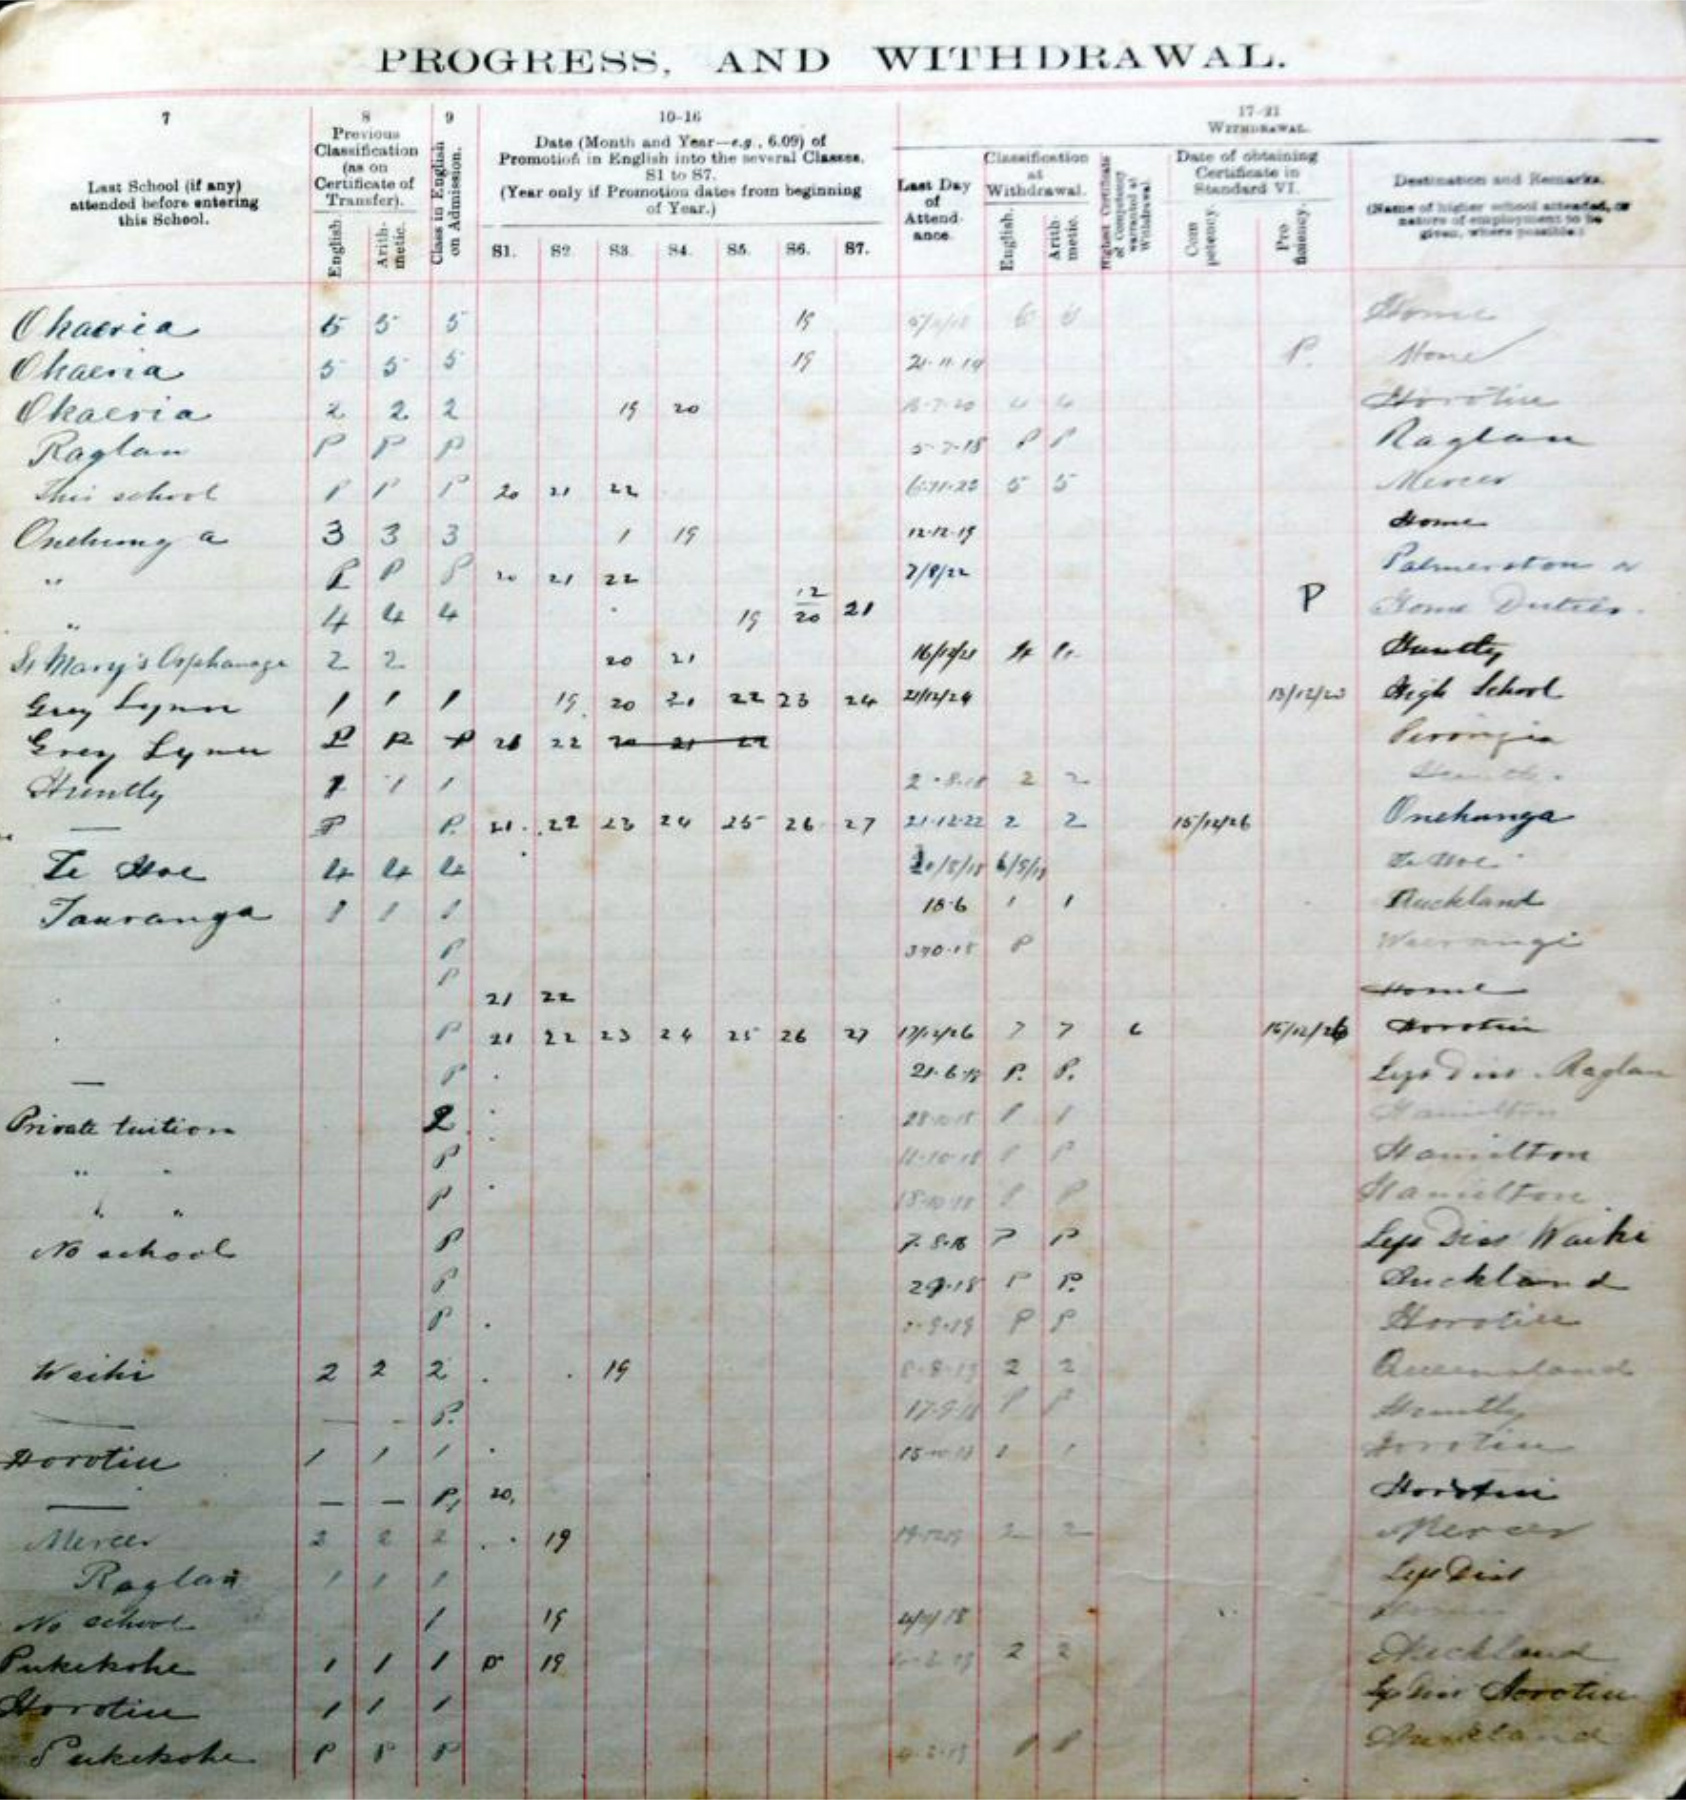 PROGRESS, AND WITHDRAWAL.
7 8 9 10-16 17-21
Last School (if any) attended before entering this School.
Previous Classification (as on Certificate of Transfer).
English. Arithmetic.
Class in English on Admission.
Date (Month and Year—e.g., 6.09) of Promotion in English into the several Classes, S1 to S7.
(Year only if Promotion dates from beginning of Year.)
S1. S2. S3. S4. S5. S6. S7.
WITHDRAWAL.
Last Day of Attendance.
Classification at Withdrawal.
English. Arithmetic.
Highest Certificate of Competency warranted at Withdrawal.
Date of obtaining Certificate in Standard VI.
Competency. Proficiency.
Destination and Remarks.
(Name of higher school attended, or nature of employment to be given, where possible.)
Okaeria 5 5 5 19 Home
Okaeria 5 5 5 19 21-11-19 P. Home
Okaeria 2 2 2 19 20 4 4 Horotiu
Raglan P P P 5-7-18 P P Raglan
This school P P P 20 21 22 5 5 Mercer
Onehunga 3 3 3 1 19 12-12-19 Home
" P P P 20 21 22 7/8/22 Palmerston N
" 4 4 4 19 12/20 21 P Home Duties.
St Mary's Orphanage 2 2 20 21 16/12/21 4 4 Huntly
Grey Lynn 1 1 1 19 20 21 22 23 24 21/12/24 High School
Grey Lynn P P P 21 22 20 21 22 Pirongia
Huntly 1 1 1 2-8-18 2 2
— P P. 21. 22 23 24 25 26 27 21-12-22 2 2 15/12/26 Onehunga
Te Hoe 4 4 4 6/9/18 Te Hoe
Tauranga 1 1 1 18-6 1 1 Auckland
P P
P 21 22 Home
P 21 22 23 24 25 26 27 17/12/26 7 7 6 15/12/26 Horotiu
— P 21-6-18 P. P. Left Dist. Raglan
Private tuition 2 1 1 Hamilton
" " P 11-10-18 P P Hamilton
" " P 18-10-18 P P Hamilton
No school P 7-8-18 P P Left Dist Waihi
P P P. Auckland
P P P Horotiu
Waihi 2 2 2 19 2 2 Queensland
— — - P. 17-9-18 P P Huntly
Horotiu 1 1 1 1 1 Horotiu
— — — P. 20. Horotiu
Mercer 2 2 2 19 2 2 Mercer
Raglan 1 1 1 Left Dist
No school 1 19
Pukekohe 1 1 1 19 2 2 Auckland
Horotiu 1 1 1 Left Dist Horotiu
Pukekohe P P P P P Auckland